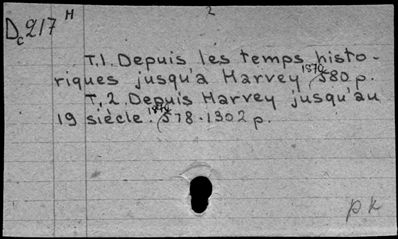 Dc217 H 2
T.1. Depuis les temps histo-
riques jusqu'a Harvey 1870 580 p.
T. 2. Depuis Harvey jusqu'au
19 siècle. 578-1302 p.
pk